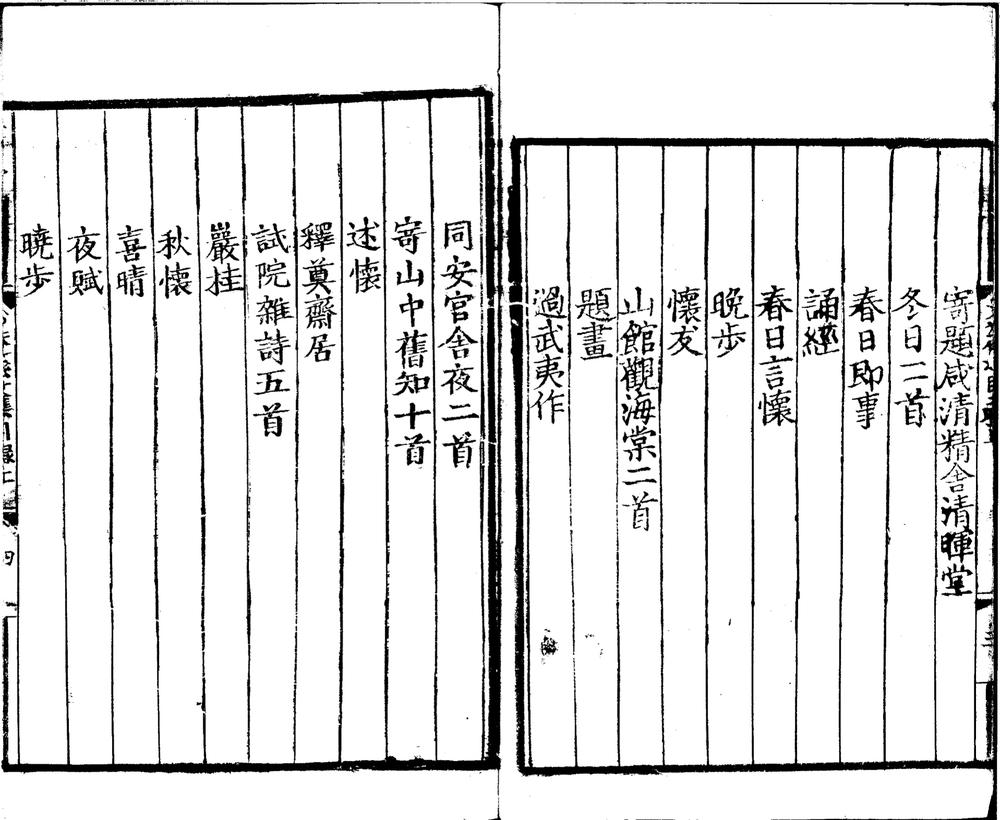 寄題咸清精舍清暉堂
冬日二首
春日即事
誦經
春日言懷
晚步
懷友
山館觀海棠二首
題畫
過武夷作
同安官舍夜二首
寄山中舊知十首
述懷
釋奠齋居
試院雜詩五首
巖桂
秋懷
喜晴
夜賦
曉步
四